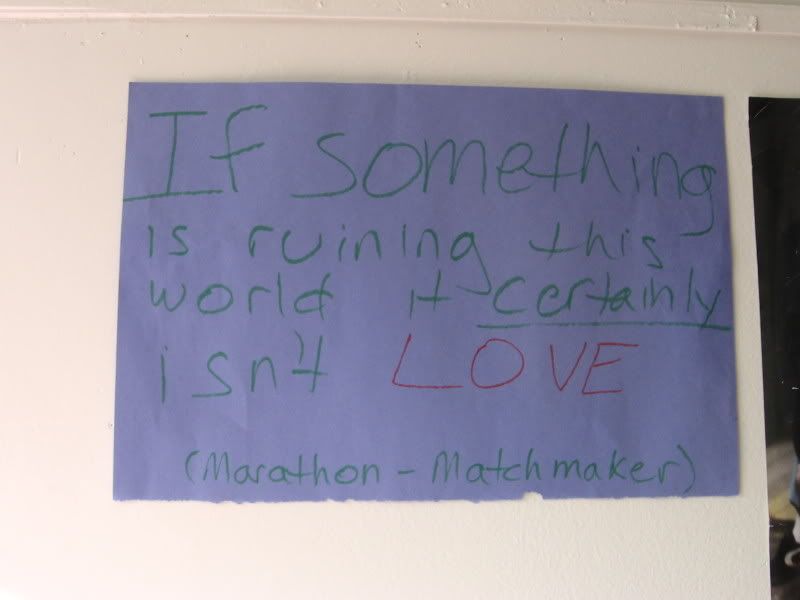 If something
is ruining this
world it certainly
isn't LOVE
(Marathon - Matchmaker)